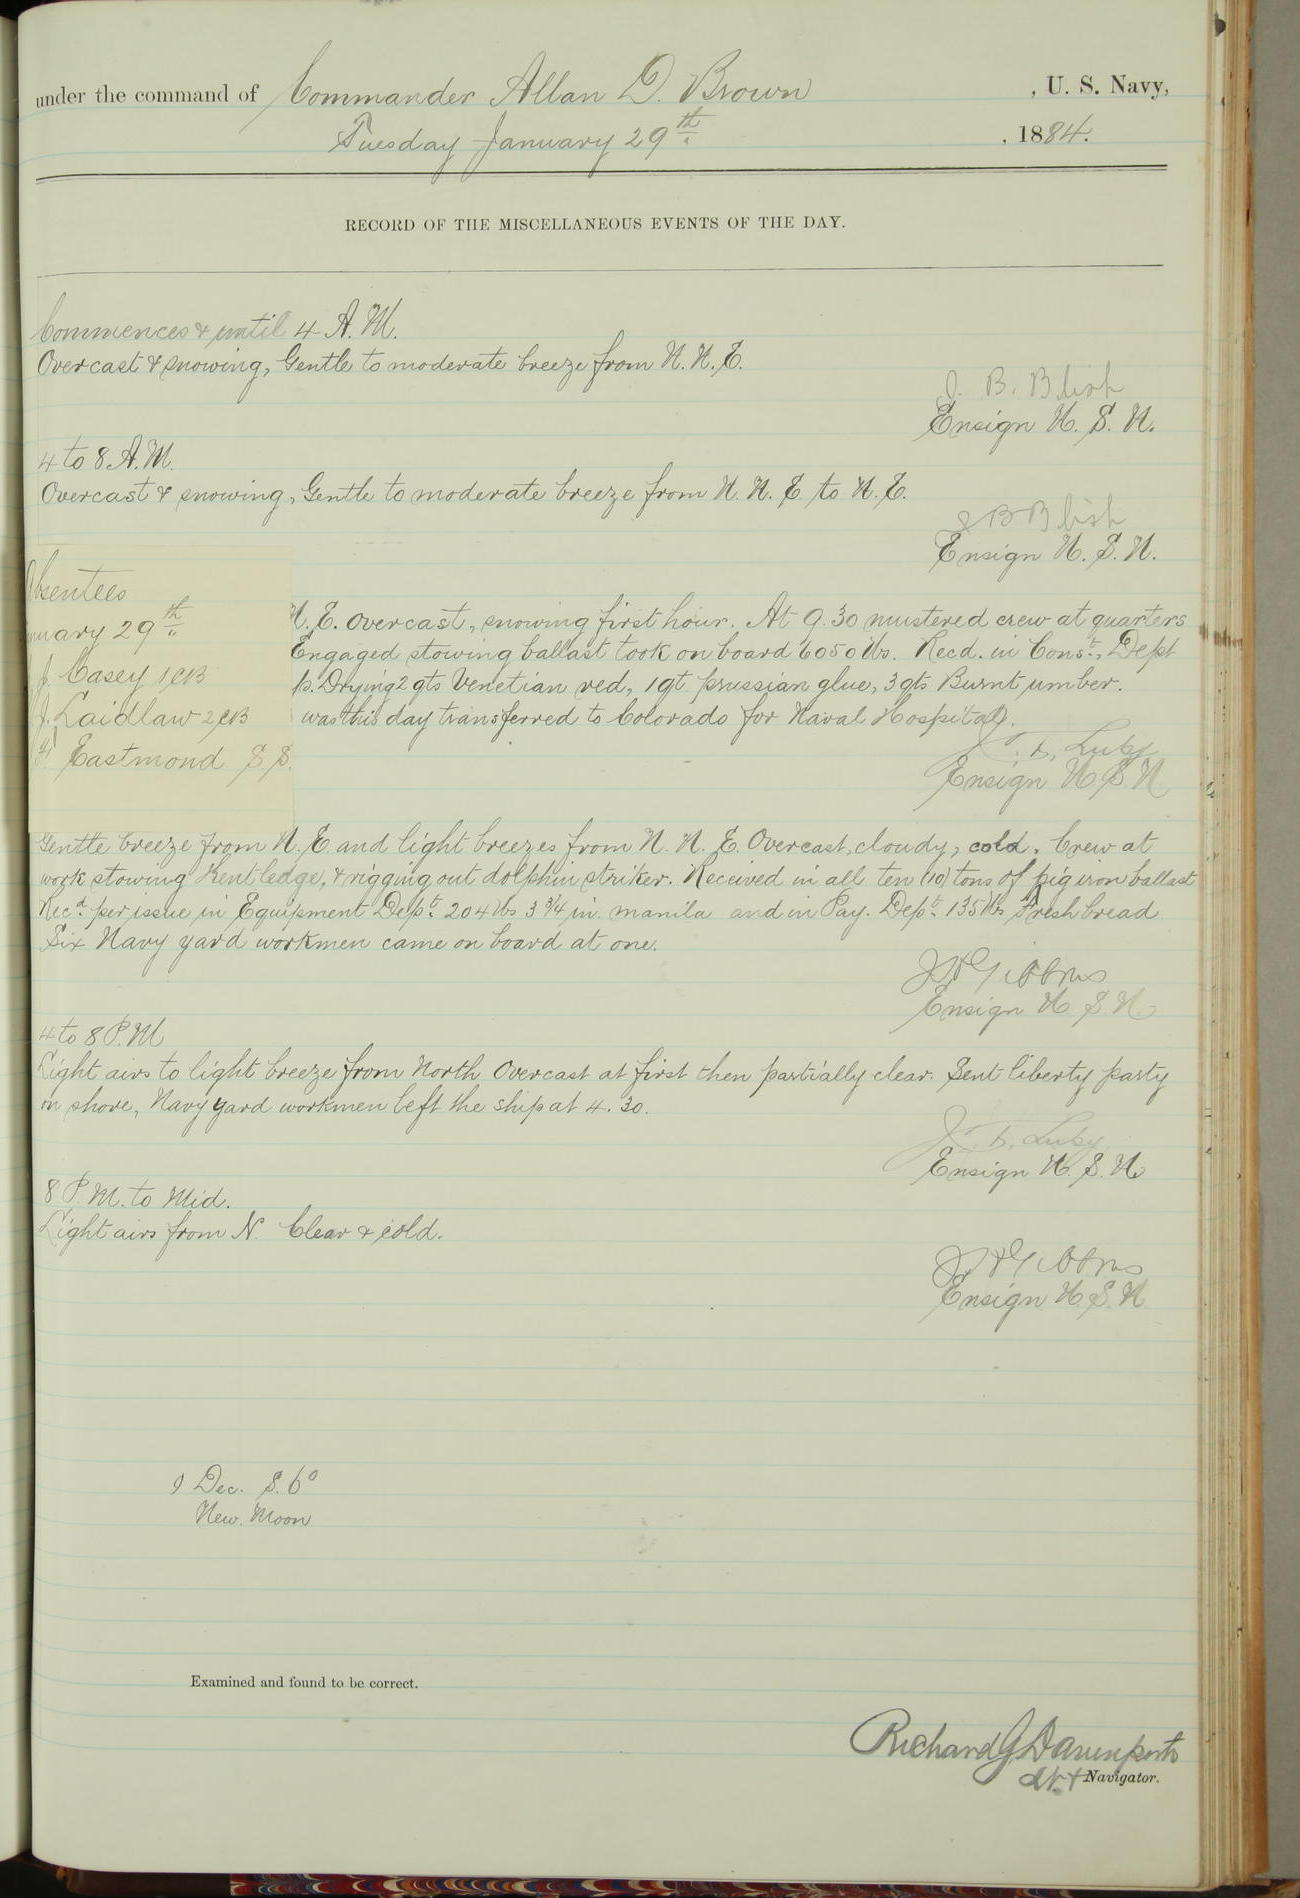 under the command of Commander Allan D. Brown , U. S. Navy,
Tuesday January 29th , 1884.
RECORD OF THE MISCELLANEOUS EVENTS OF THE DAY.
Commences & until 4 A.M.
Overcast & snowing, Gentle to moderate breeze from N. N. E.
J. B. Blish
Ensign U. S. N.
4 to 8 A.M.
Overcast & snowing, Gentle to moderate breeze from N. N. E. to N. E.
J B Blish
Ensign U. S. N.
Absentees
nuary 29th
J. Casey 1 CB
J. Laidlaw 2 CB
Eastmond S S.
N. E. overcast, snowing first hour. At 9.30 mustered crew at quarters
Engaged stowing ballast took on board 6050 lbs. Recd. in Const. Dept
p. Drying 2 qts Venetian red, 1 qt prussian glue, 3 qts Burnt umber.
was this day transferred to Colorado for Naval Hospital.
J. F. Luby
Ensign U S N
Gentle breeze from N. E. and light breezes from N. N. E. Overcast, cloudy, cold. Crew at
work stowing Kentledge, & rigging out dolphin striker. Received in all ten (10) tons of pig iron ballast
Recd. per issue in Equipment Dept. 204 lbs 3 3/4 in. manila and in Pay. Dept. 135 lbs Fresh bread
Six Navy yard workmen came on board at one.
J H Gibbons
Ensign U S N.
4 to 8 P.M
Light airs to light breeze from North Overcast at first then partially clear. Sent liberty party
on shore, Navy yard workmen left the ship at 4.30.
J. F. Luby
Ensign U. S. N.
8 P.M. to Mid.
Light airs from N. Clear & cold.
J H Gibbons
Ensign U. S. N
Dec. S. 6°
New. Moon
Examined and found to be correct.
Richard G Davenport
Lt. & Navigator.